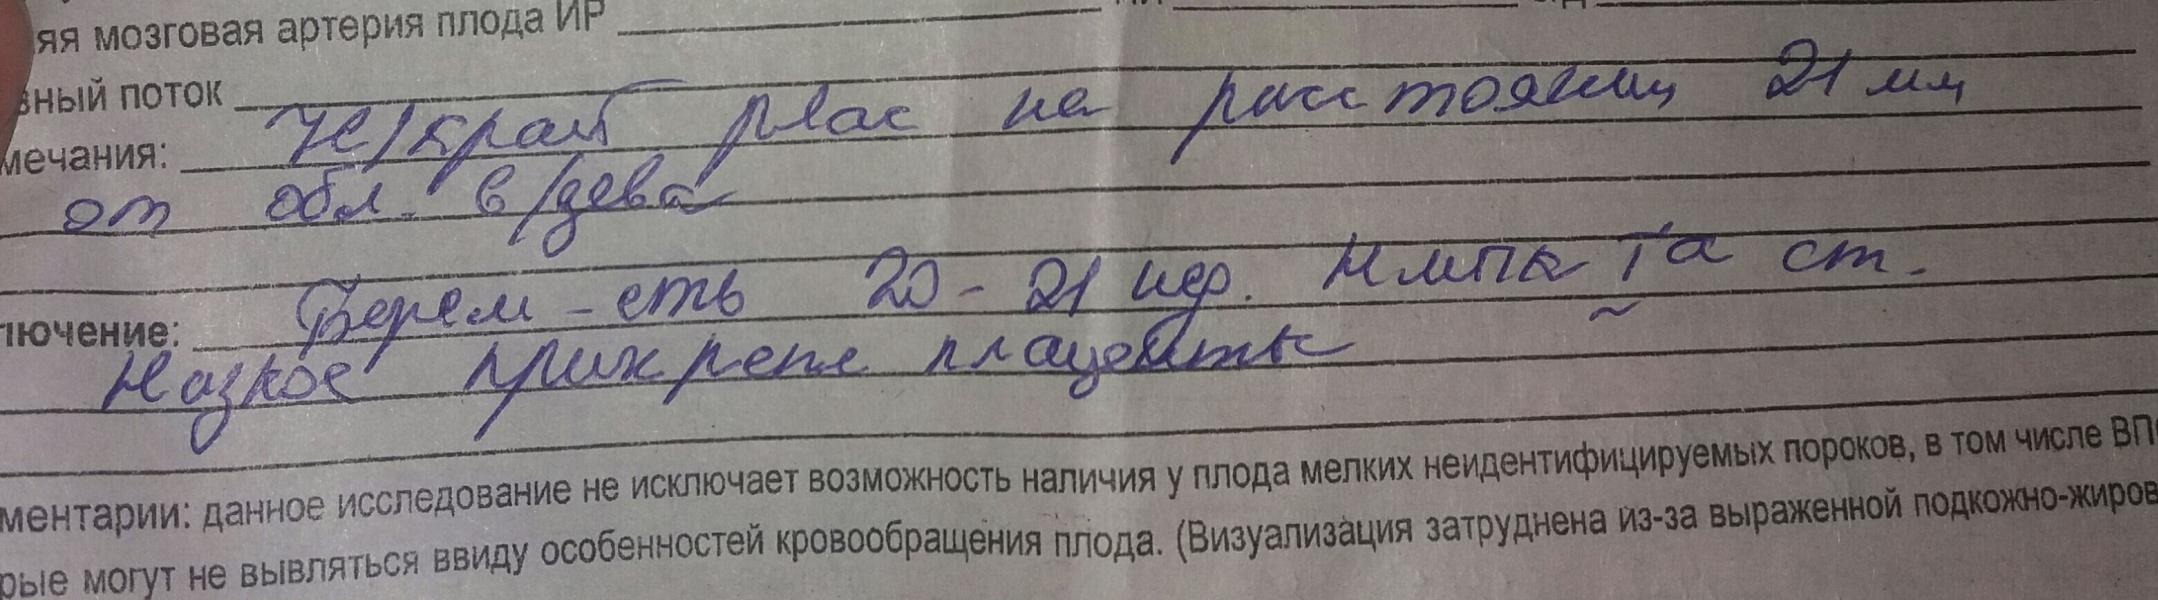 яя мозговая артерия плода ИР
вный поток
мечания: Н/край plac на расстоянии 21 мм
от обл. в/зева
лючение: Берем-сть 20-21 нед. НМПК Iа ст.
Низкое прикрепл плаценты
ментарии: данное исследование не исключает возможность наличия у плода мелких неидентифицируемых пороков, в том числе ВП
рые могут не вывляться ввиду особенностей кровообращения плода. (Визуализация затруднена из-за выраженной подкожно-жиров